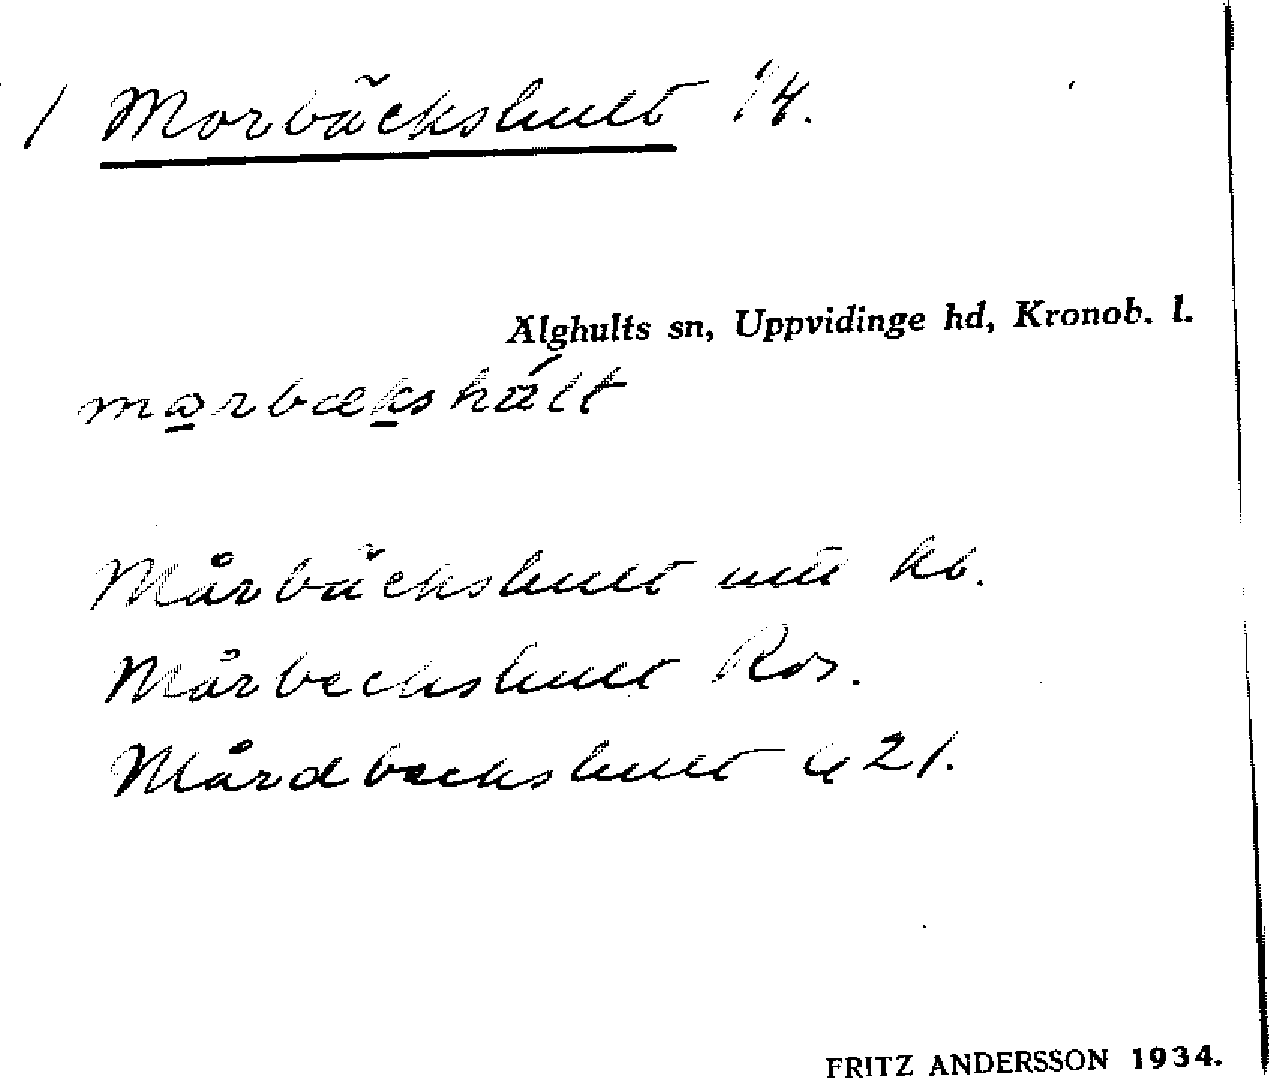 / Morbäckshult 1/4.
Älghults sn, Uppvidinge hd, Kronob. l.
marbækshált
Mårbäckshult utt kb.
Mårbeckshult Ros.
Mårdbeckshult 421.
FRITZ ANDERSSON 1934.